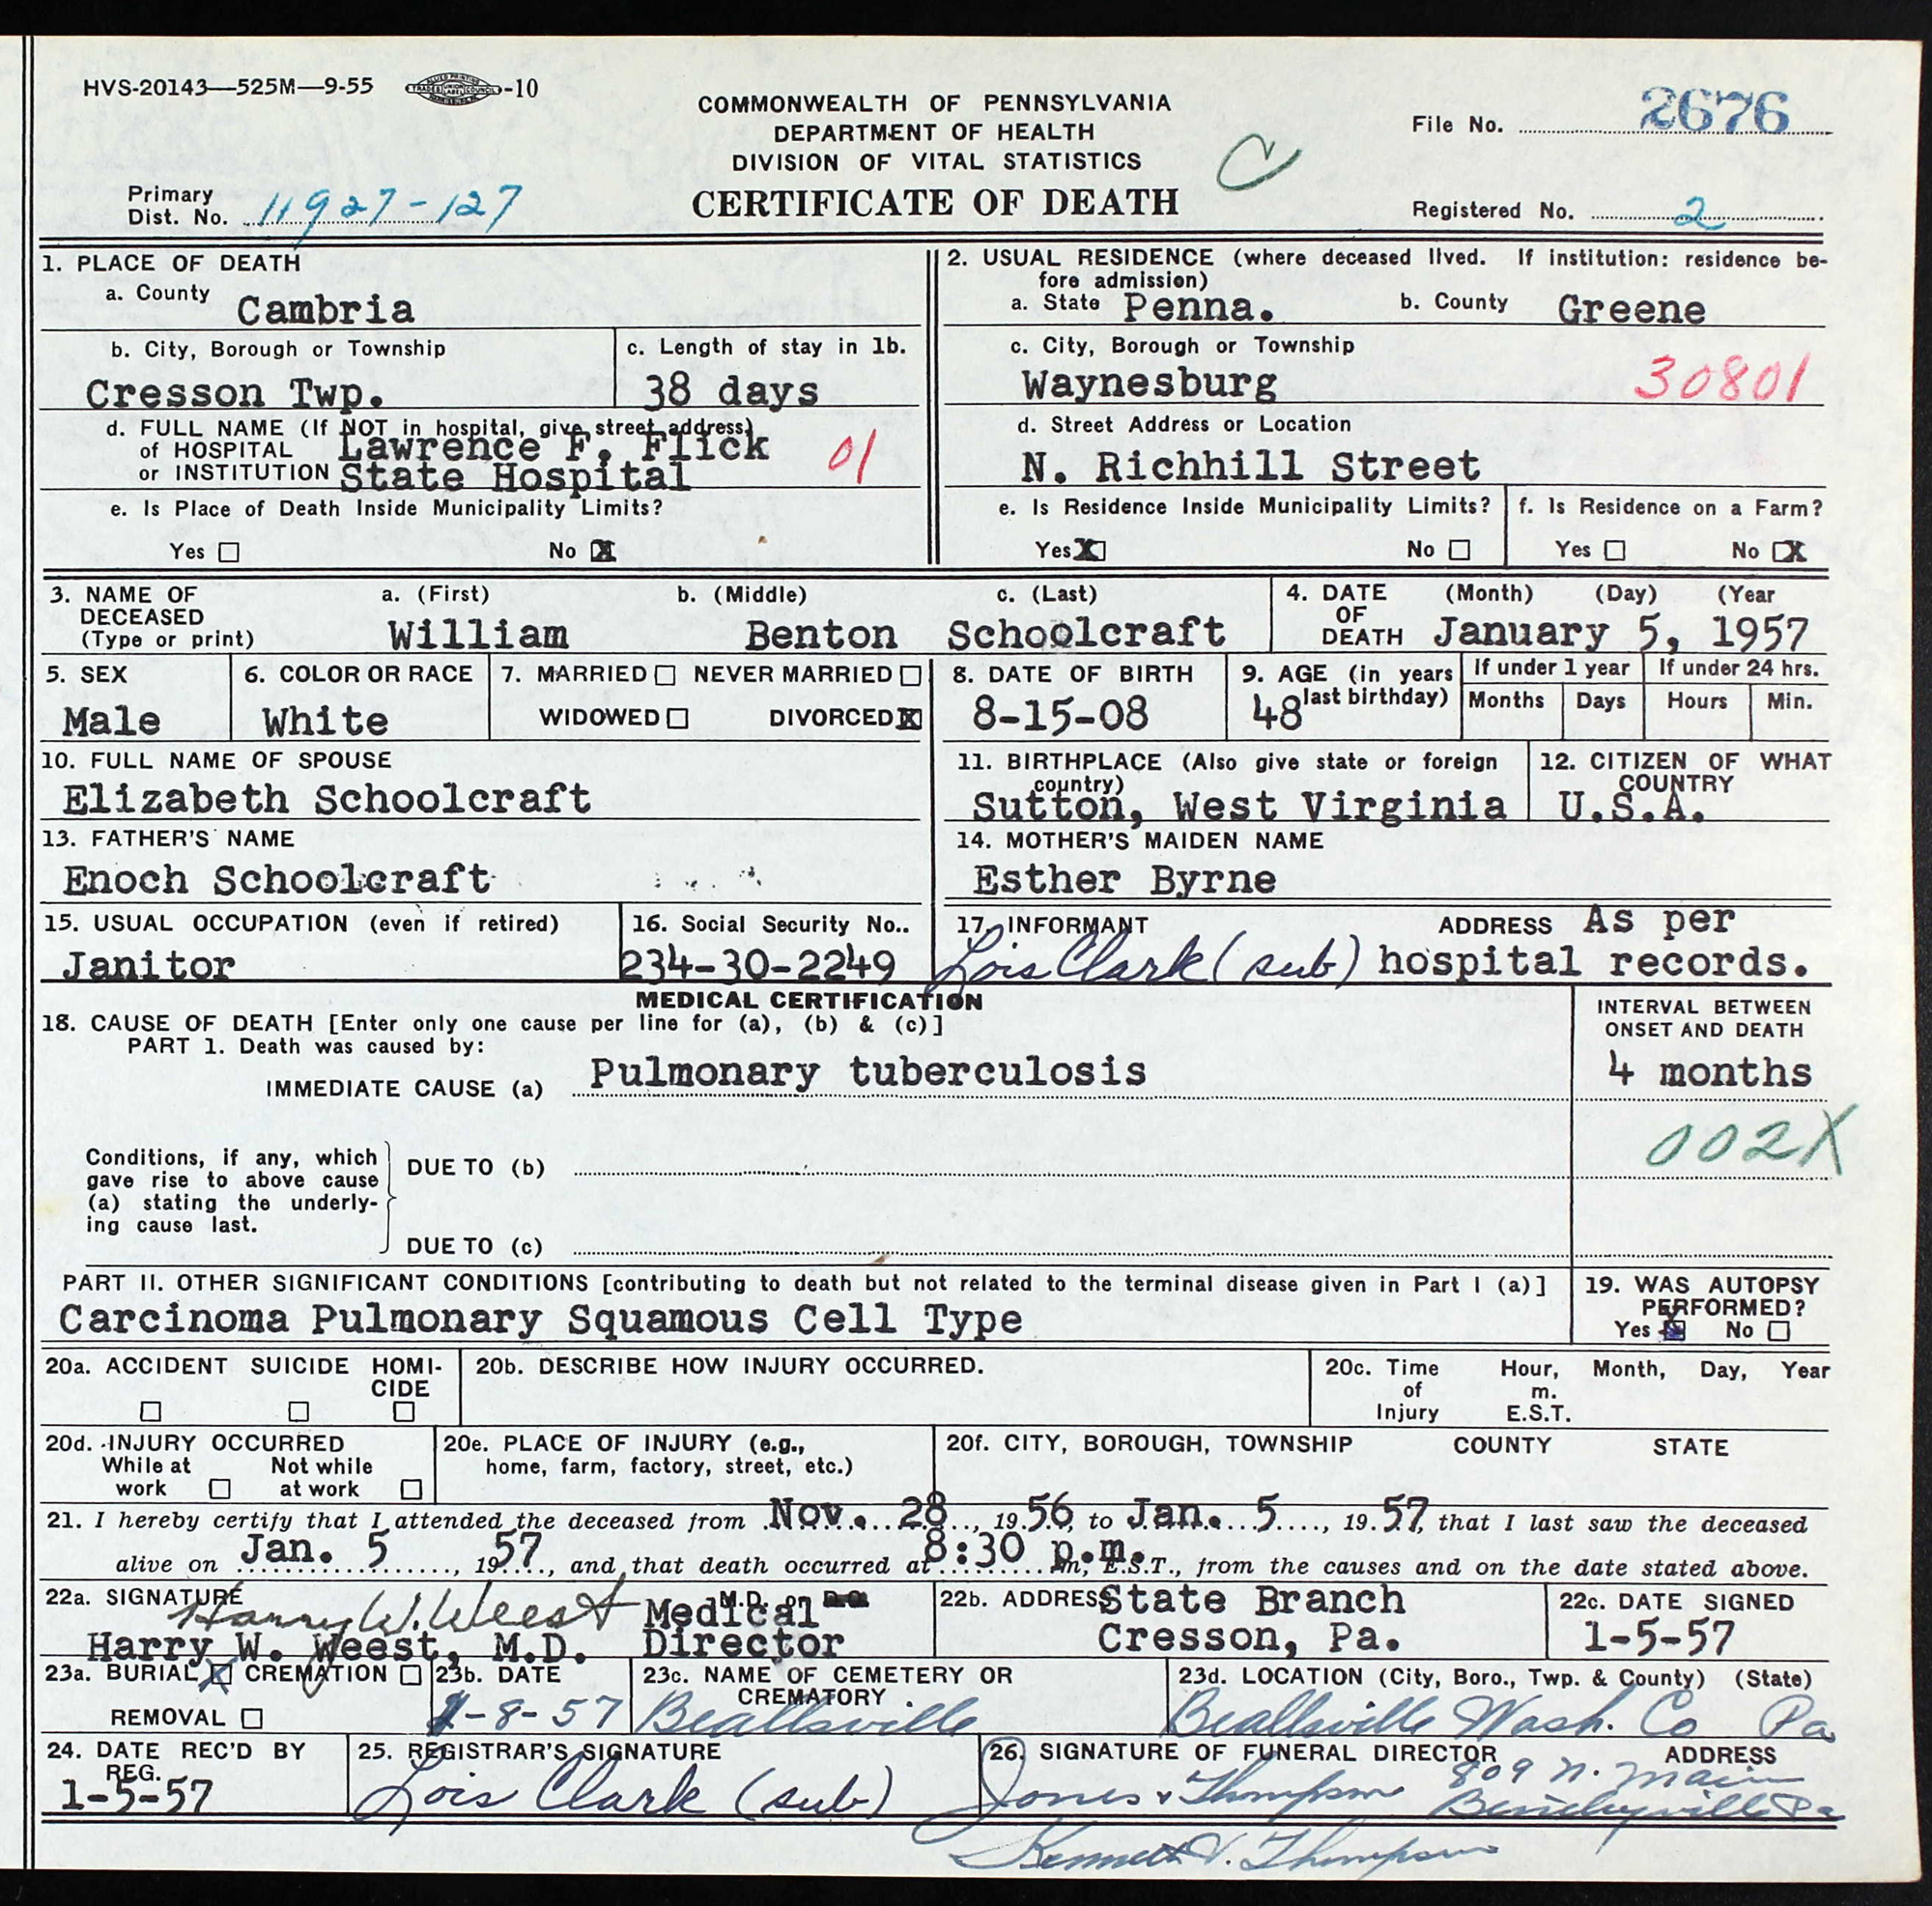 HVS-20143—525M—9-55 -10
COMMONWEALTH OF PENNSYLVANIA
DEPARTMENT OF HEALTH
DIVISION OF VITAL STATISTICS
CERTIFICATE OF DEATH
C
File No. 2676
Primary
Dist. No. 11927-127
Registered No. 2
1. PLACE OF DEATH
a. County Cambria
b. City, Borough or Township
Cresson Twp.
c. Length of stay in 1b.
38 days
d. FULL NAME (If NOT in hospital, give street address)
of HOSPITAL Lawrence F. Flick
or INSTITUTION State Hospital
01
e. Is Place of Death Inside Municipality Limits?
Yes No X
2. USUAL RESIDENCE (where deceased lived. If institution: residence be-
fore admission)
a. State Penna. b. County Greene
c. City, Borough or Township
Waynesburg 30801
d. Street Address or Location
N. Richhill Street
e. Is Residence Inside Municipality Limits?
Yes X No
f. Is Residence on a Farm?
Yes No X
3. NAME OF
DECEASED
(Type or print)
a. (First) b. (Middle) c. (Last)
William Benton Schoolcraft
4. DATE
OF
DEATH
(Month) (Day) (Year
January 5, 1957
5. SEX
Male
6. COLOR OR RACE
White
7. MARRIED NEVER MARRIED
WIDOWED DIVORCED X
8. DATE OF BIRTH
8-15-08
9. AGE (in years
last birthday)
48
If under 1 year
Months Days
If under 24 hrs.
Hours Min.
10. FULL NAME OF SPOUSE
Elizabeth Schoolcraft
11. BIRTHPLACE (Also give state or foreign
country)
Sutton, West Virginia
12. CITIZEN OF WHAT
COUNTRY
U.S.A.
13. FATHER'S NAME
Enoch Schoolcraft
14. MOTHER'S MAIDEN NAME
Esther Byrne
15. USUAL OCCUPATION (even if retired)
Janitor
16. Social Security No..
234-30-2249
17. INFORMANT ADDRESS As per
Lois Clark (sub) hospital records.
MEDICAL CERTIFICATION
18. CAUSE OF DEATH [Enter only one cause per line for (a), (b) & (c)]
PART 1. Death was caused by:
IMMEDIATE CAUSE (a) Pulmonary tuberculosis
INTERVAL BETWEEN
ONSET AND DEATH
4 months
002X
Conditions, if any, which
gave rise to above cause
(a) stating the underly-
ing cause last.
DUE TO (b)
DUE TO (c)
PART II. OTHER SIGNIFICANT CONDITIONS [contributing to death but not related to the terminal disease given in Part I (a)]
Carcinoma Pulmonary Squamous Cell Type
19. WAS AUTOPSY
PERFORMED?
Yes X No
20a. ACCIDENT SUICIDE HOMI-
CIDE
20b. DESCRIBE HOW INJURY OCCURRED.
20c. Time Hour, Month, Day, Year
of m.
Injury E.S.T.
20d. INJURY OCCURRED
While at Not while
work at work
20e. PLACE OF INJURY (e.g.,
home, farm, factory, street, etc.)
20f. CITY, BOROUGH, TOWNSHIP COUNTY STATE
21. I hereby certify that I attended the deceased from Nov. 28, 1956, to Jan. 5, 1957, that I last saw the deceased
alive on Jan. 5, 1957, and that death occurred at 8:30 p.m. m, E.S.T., from the causes and on the date stated above.
22a. SIGNATURE
Harry W. Weest M.D. or D.O.
Harry W. Weest, M.D. Medical Director
22b. ADDRESS State Branch
Cresson, Pa.
22c. DATE SIGNED
1-5-57
23a. BURIAL X CREMATION
REMOVAL
23b. DATE
1-8-57
23c. NAME OF CEMETERY OR
CREMATORY
Beallsville
23d. LOCATION (City, Boro., Twp. & County) (State)
Beallsville Wash. Co Pa
24. DATE REC'D BY
REG.
1-5-57
25. REGISTRAR'S SIGNATURE
Lois Clark (sub)
26. SIGNATURE OF FUNERAL DIRECTOR ADDRESS
Jones & Thompson 809 N. Main
Pa
Kenneth V. Thompson